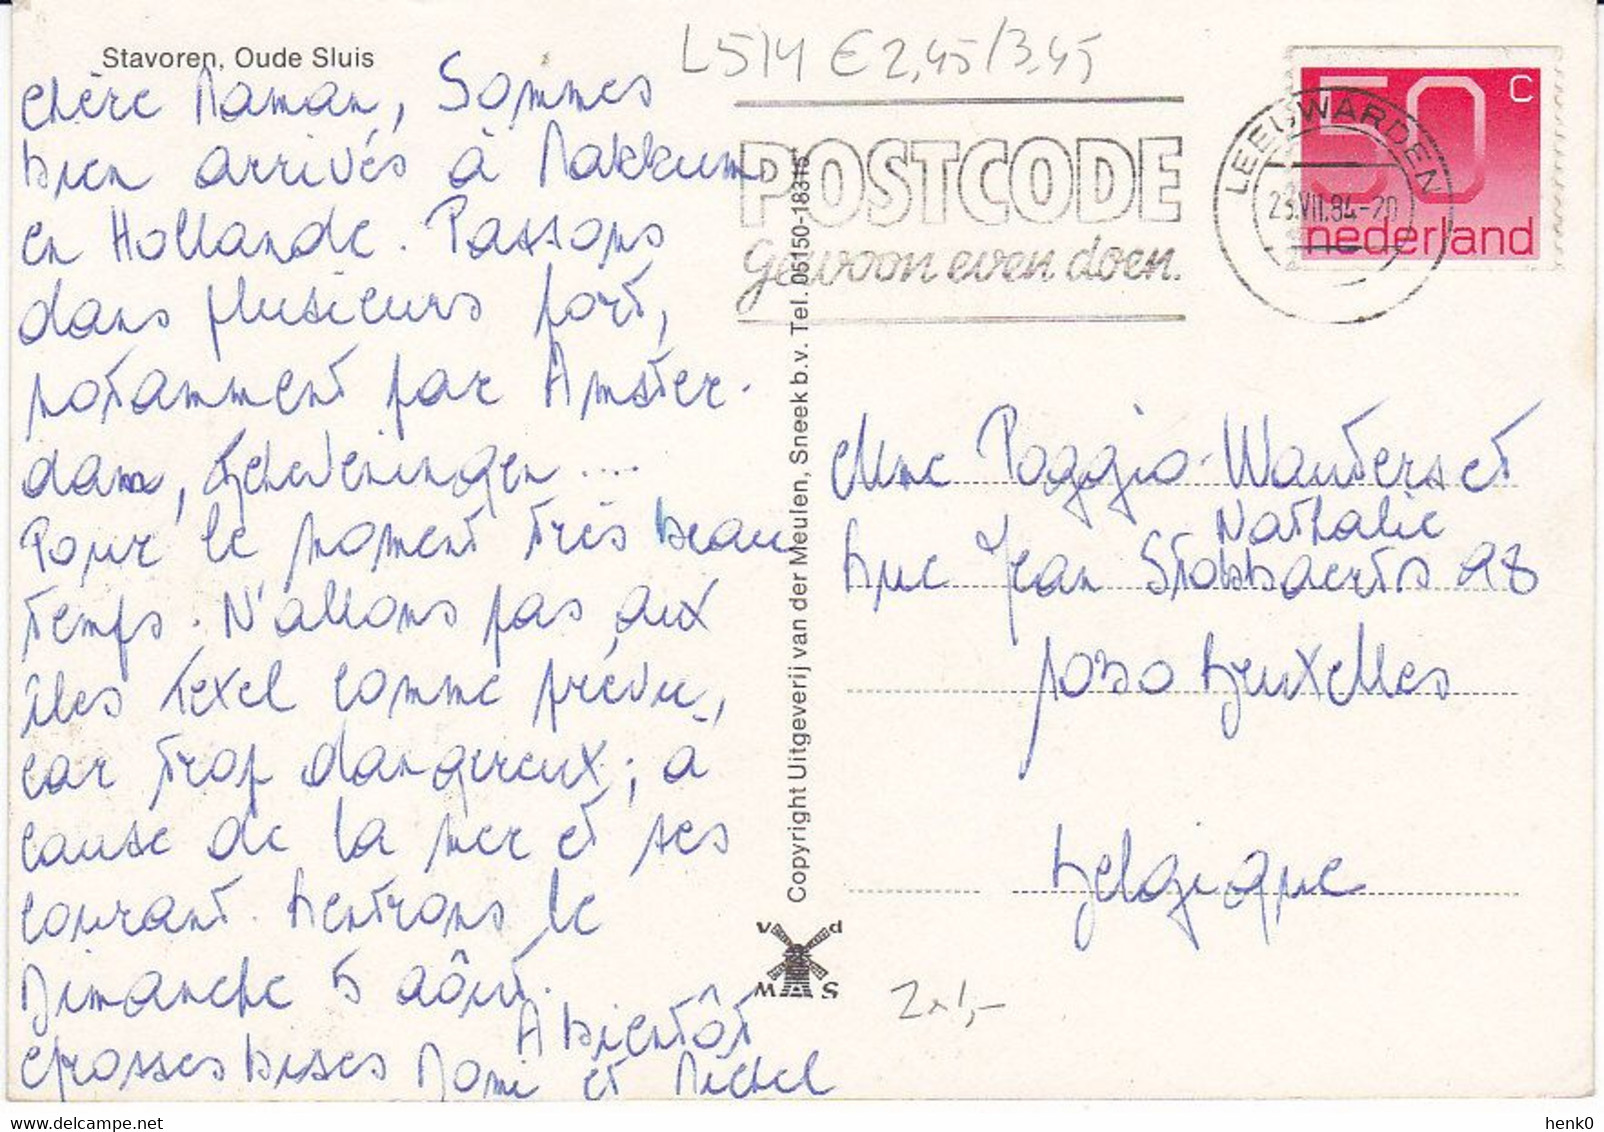 Stavoren, Oude Sluis
Chère Maman, Sommes
bien arrivés à Makkum
en Hollande. Passons
dans plusieurs port,
notamment par Amster-
dam, Scheveningen ....
Pour le moment très beau
temps. N'allons pas aux
îles Texel comme prévu,
car trop dangereux; à
cause de la mer et ses
courant. Rentrons le
Dimanche 5 août.
A bientôt
Grosses bises Domi et Michel
Copyright Uitgeverij van der Meulen, Sneek b.v. Tel. 05150-18315
v d
W S
L514 € 2,45/3,45
POSTCODE
Gewoon even doen.
LEEUWARDEN
23.VII.84-20
50 C
nederland
Mme Poggio-Wauters et
Nathalie
Rue Jean Stobbaerts 98
1030 Bruxelles
Belgique
2x1,-
henk0